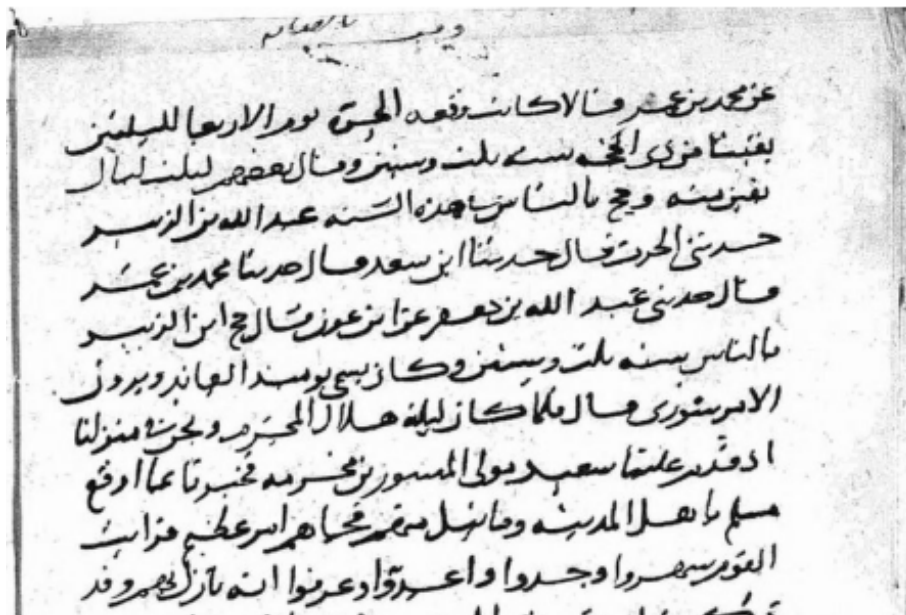 عن محمد بن عمر قالا كانت وقعه الحرة يوم الاربعا لليلتين
بقيتا من ذى الحجه سنه ثلث وستين وقال بعضهم لثلث ليال
بقين منه وحج بالناس فى هذه السنه عبد الله بن الزبير
حدثنى الحرث قال حدثنا ابن سعد قال حدثنا محمد بن عمر
قال حدثنى عبد الله بن جعفر عن ابن عون قال حج ابن الزبير
بالناس سنه ثلث وستين وكان يسمى يومئذ العائذ ويرون
الامر شورى قال فلما كان ليلة هلال المحرم ونحن فى منزلنا
اذ قدم علينا سعيد مولى المسور بن مخرمه فخبرنا بما اوقع
مسلم باهل المدينه وما نيل منهم فجاهم امر عظيم فرايت
القوم شهروا وجدوا واعدوا وعرفوا انه نازل بهم وقد